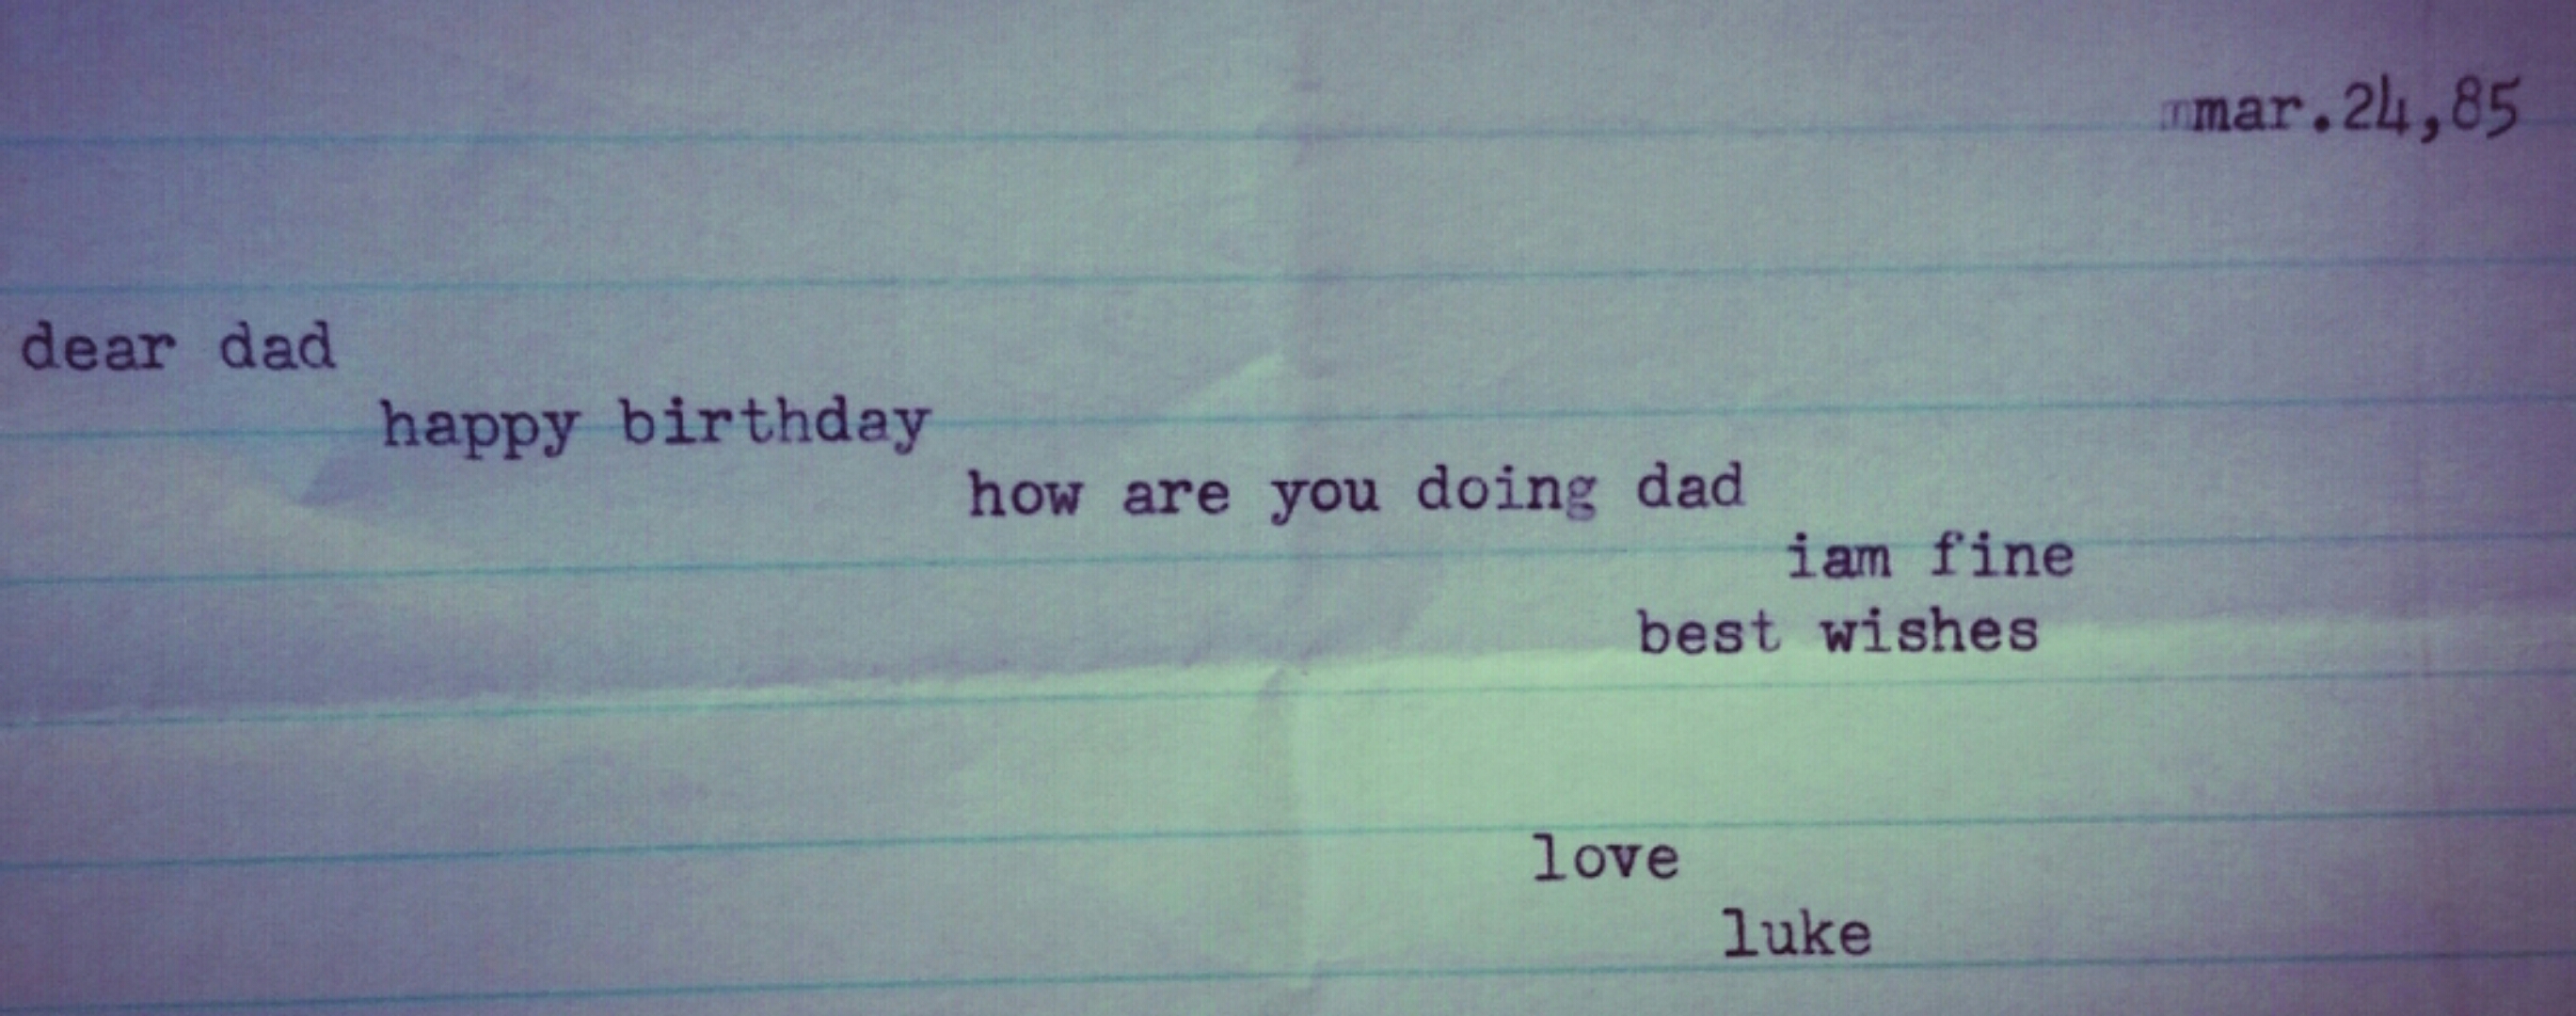 mar.24,85
dear dad
happy birthday
how are you doing dad
iam fine
best wishes
love
luke